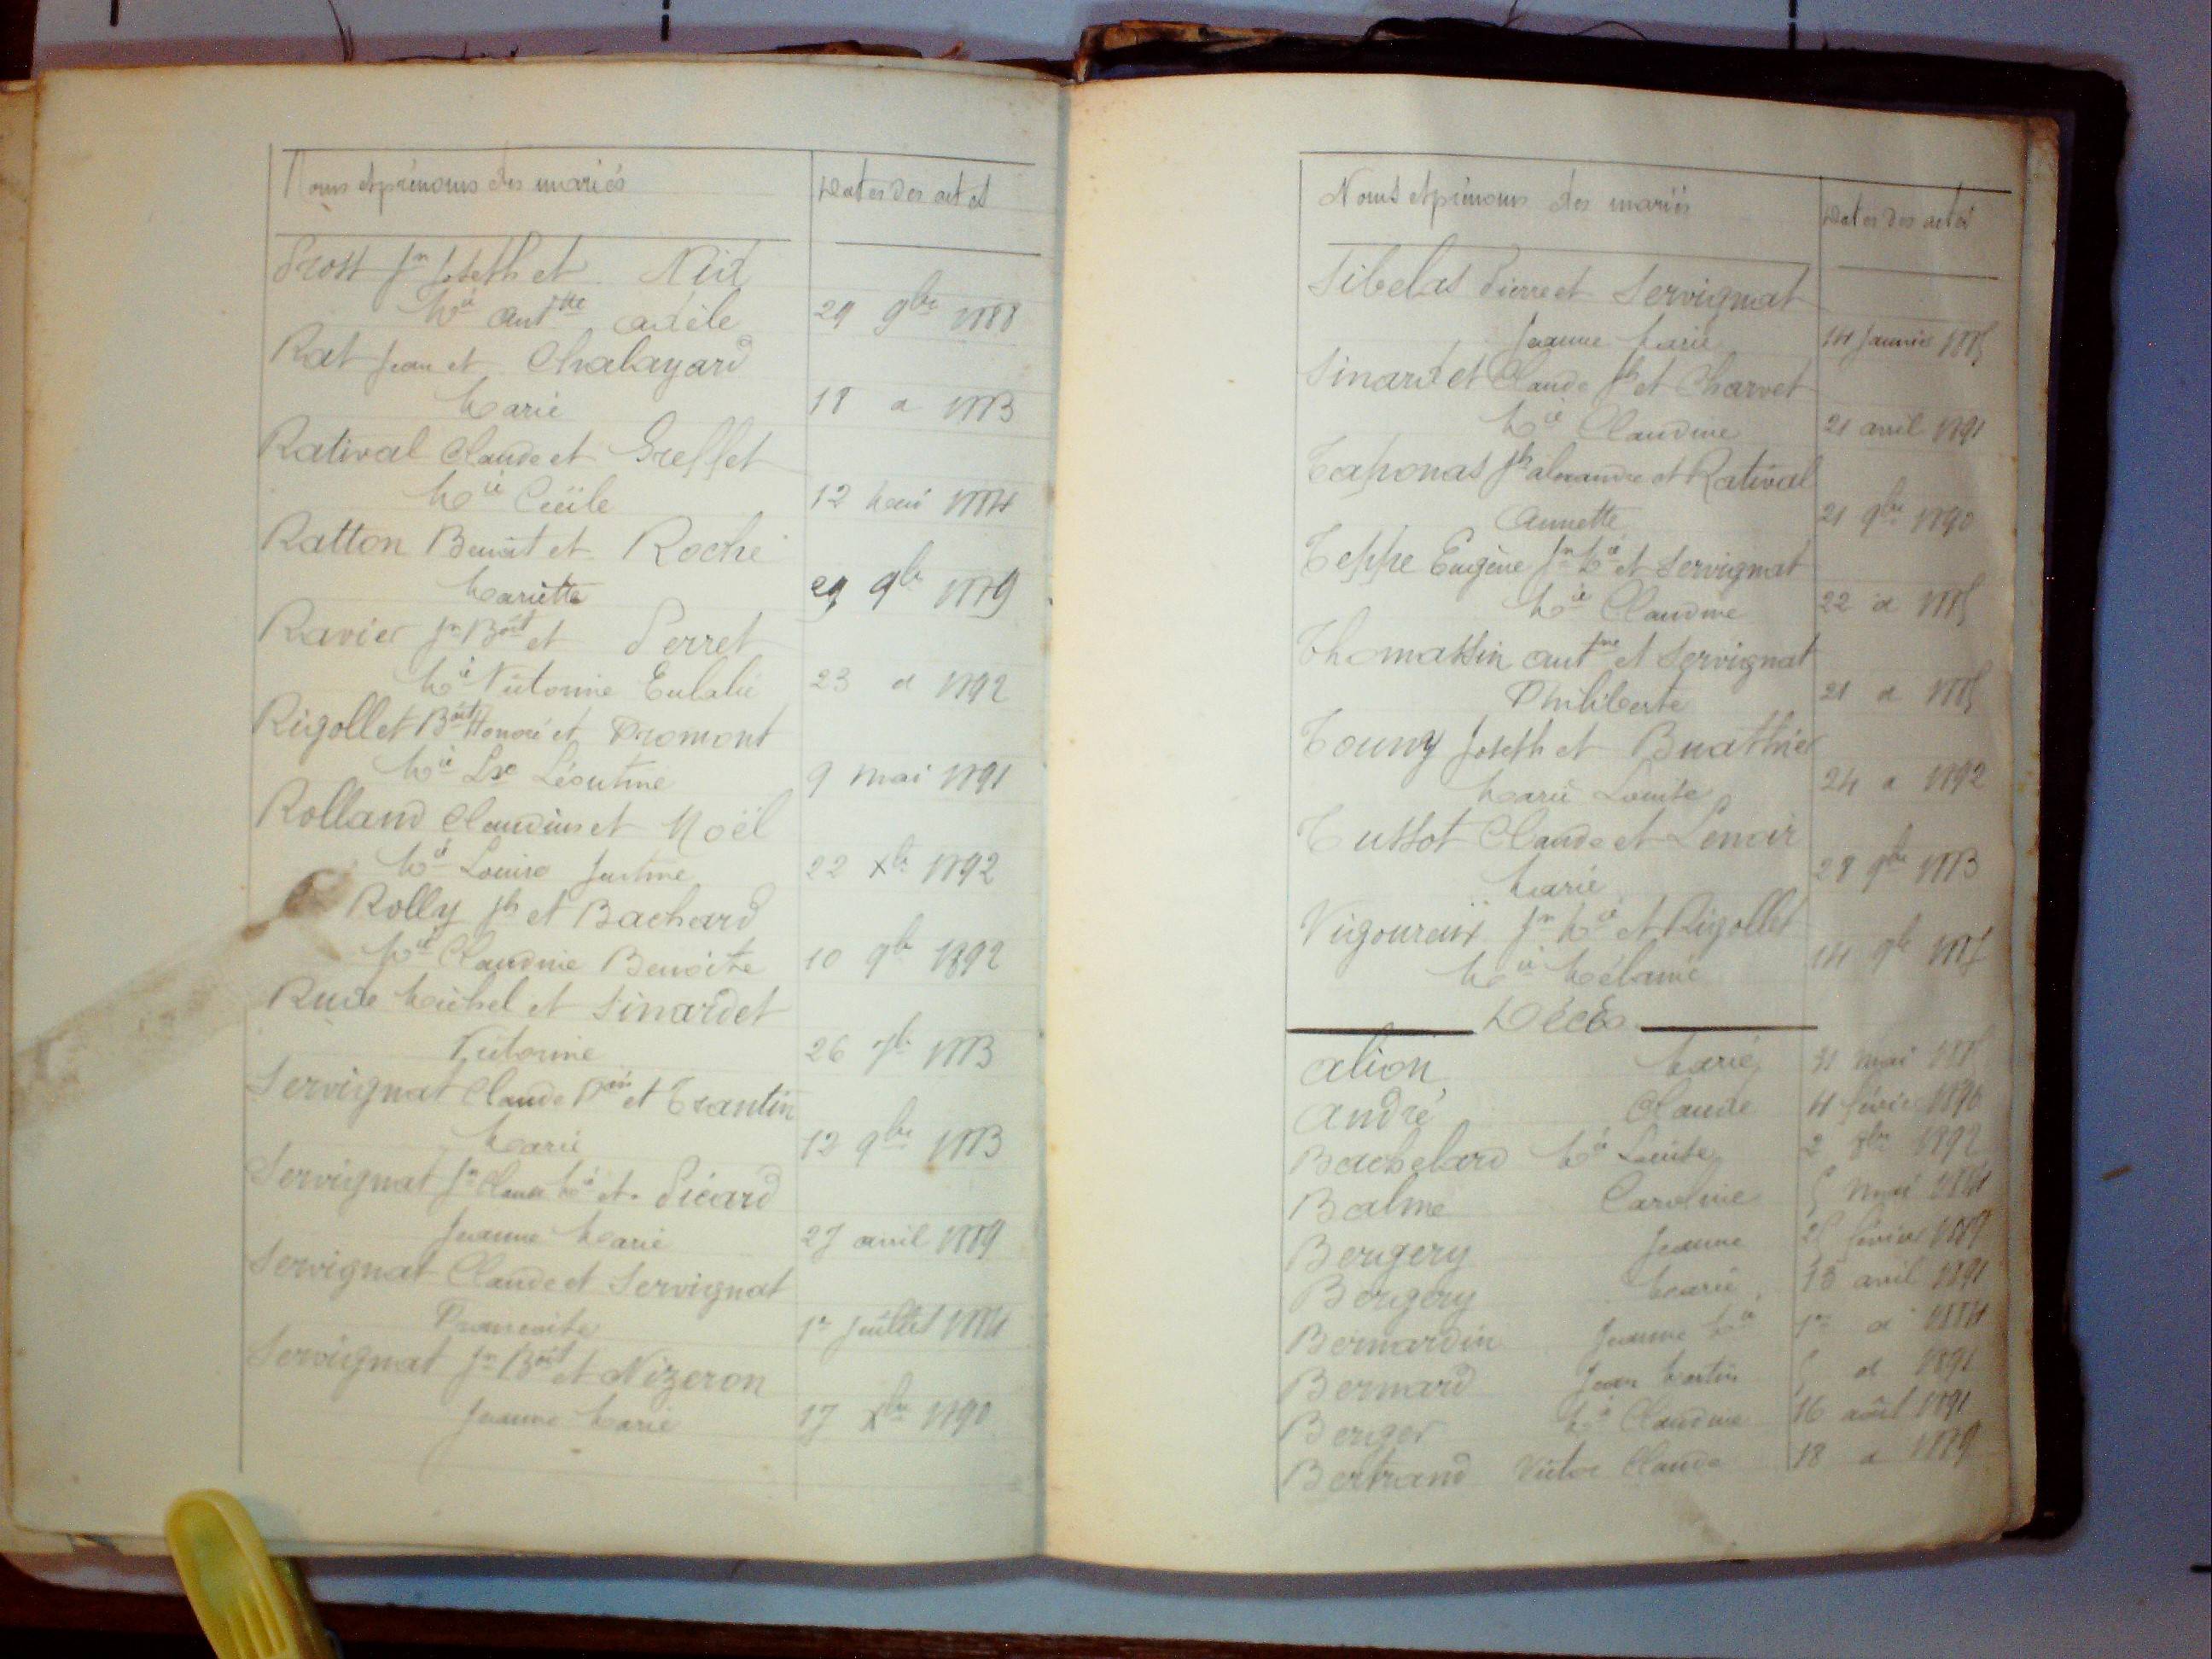 Noms et prénoms des mariés Dates des actes
Prost Jn Joseph et Nid
Mie Anttte Adèle 29 9bre 1888
Rat Jean et Chalayard
Marie 18 d 1883
Ratival Claude et Greffet
Mie Cécile 12 Mai 1884
Ratton Benoît et Roche
Mariette 29 9bre
Ravier Jn Boît et Perret
Mie Victorine Eulalie 23 d 1892
Rigollet Boît Honoré et Promont
Mie Lse Léontine 9 mai 1891
Rolland Claudius et Noël
Mie Louise Justine 22 Xbre 1892
Rolly Jh et Bachard
Mie Claudine Benoite 10 9bre 1892
Rude Michel et Sinardet
Victorine 26 1883
Servignat Claude et Trantin
Marie 12 9bre 1883
Servignat Jn Claude Mie et Picard
Jeanne Marie 27 avril 1889
Servignat Claude et Servignat
Françoise 1er Juillet 1884
Servignat Jn Boît et Nizeron
Jeanne Marie 17 Xbre 1890
Noms et prénoms des mariés Dates des actes
Sibelas Pierre et Servignat
Jeanne Marie 14 Janvier 1885
Sinardet Claude Jh et Charvet
Mie Claudine 21 avril 1891
Taponas Jh alexandre et Ratival
Annette 21 9bre 1890
Teppe Eugène Jn Mie et Servignat
Mie Claudine 22 d 1885
Thomassin Antne et Servignat
Philiberte 21 d 1885
Touny Joseph et Buathier
Marie Louise 24 d 1892
Tussot Claude et Lenoir
Marie 28 9bre 1883
Vigoureux Jn Mie et Rigollet
Mie Mélanie 14 9bre
Décès
Alion Marie 31 mai 1885
André Claude 4 février 1890
Bachelard Mie Louise 2 1892
Balme Caroline 5 mai 1884
Bergery Jeanne 25 février
Bergery Marie 13 avril 1891
Bernardin Jeanne Mie 1er d 1884
Bernard Jean Martin 5 d 1891
Berger Mie Claudine 16 août 1891
Bertrand Victor Claude 18 d 1889